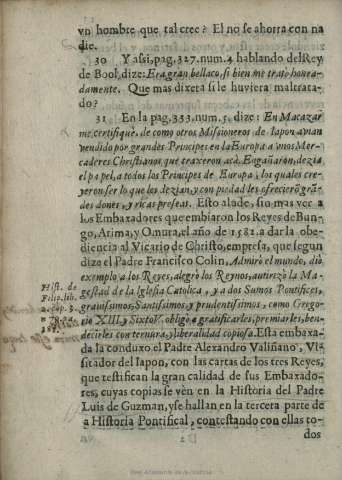 vn hombre que tal cree? El no se ahorra con na
die.
30 Y assi, pag. 327. num. 4 hablando del Rey
de Bool, dize: Era gran bellaco, si bien me trato honra-
damente. Que mas dixera si le huviera maltrata-
do?
31 En la pag. 333. num. 5. dize: En Macazar
me certifiquè, de como otros Missioneros de Iapon avian
vendido por grandes Principes en la Europa a vnos Mer-
caderes Christianos, que traxeron acà. Engañaron, dezia
el papel, a todos los Principes de Europa; los quales cre-
yeron ser lo que les dezian, y con piedad les ofrecierō grā-
des dones, y ricas preseas. Esto añade, sin mas ver a
los Embaxadores que embiaron los Reyes de Bun-
go, Arima, y Omura, el año de 1582. a dar la obe-
diencia al Vicario de Christo, empresa, que segun
dize el Padre Francisco Colin, Admirò el mundo, diò
exemplo a los Reyes, alegrò los Reynos, autorizò la Ma-
gestad de la Iglesia Catolica, y a dos Sumos Pontifices,
gravissimos, Santissimos, y prudentissimos, como Grego-
rio XIII. y Sixto V. obligò a gratificarles, premiarles, ben-
decirles con ternura, y liberalidad copiosa. Esta embaxa-
da la conduxo el Padre Alexandro Valiñano, Vi-
sitador del Iapon, con las cartas de los tres Reyes,
que testifican la gran calidad de sus Embaxado-
res, cuyas copias se vèn en la Historia del Padre
Luis de Guzman, y se hallan en la tercera parte de
a Historia Pontifical, contestando con ellas to-
D 2
dos
Hist. de
Filip. lib.